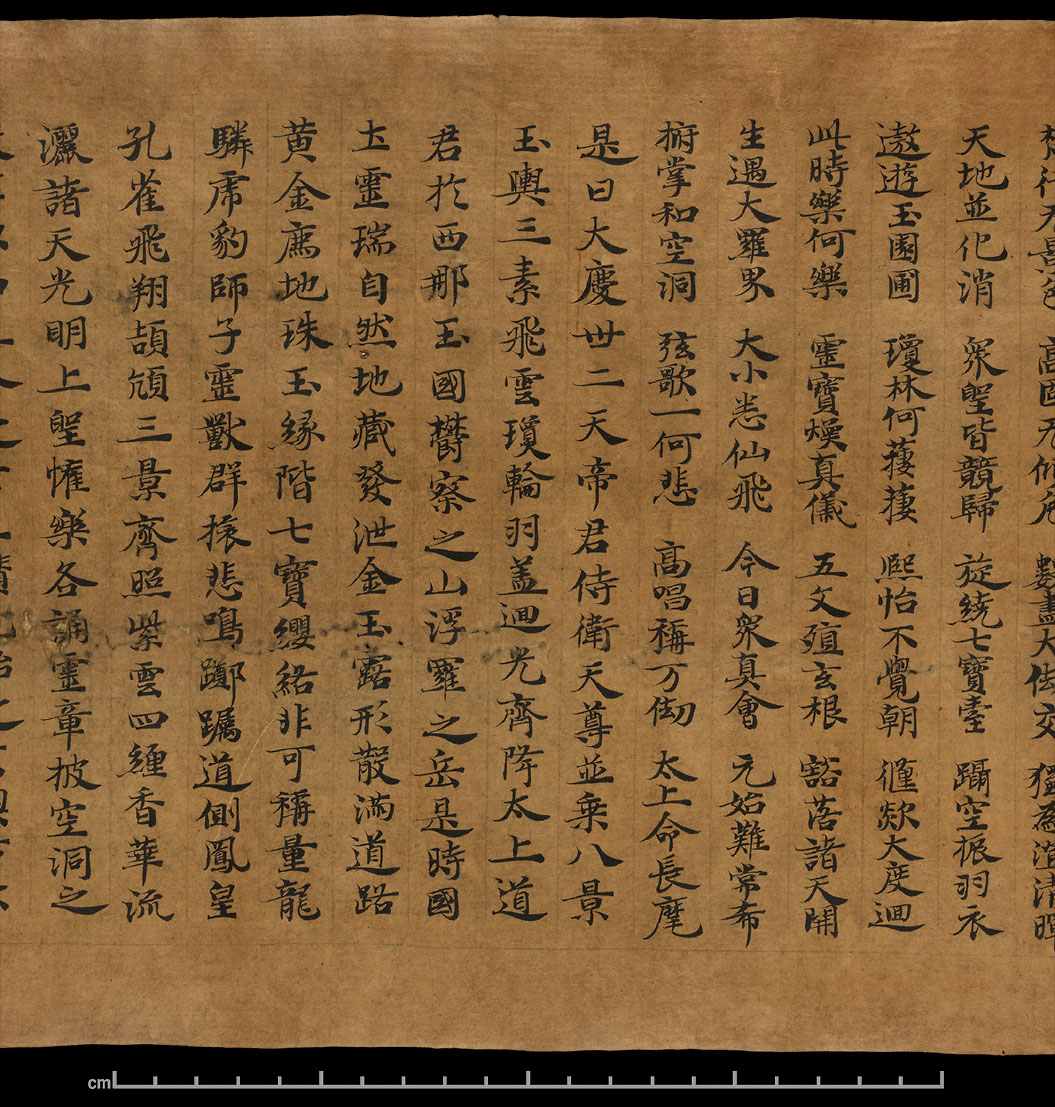 天地並化消　衆聖皆競歸　旋繞七寶臺　躡空振羽衣
遨遊玉園圃　瓊林何萋萋　熙怡不覺朝　倏欻大度迴
此時樂何樂　靈寶燥真儀　五文殖玄根　豁落諸天開
生遇大羅界　大小悉仙飛　今日衆真會　元始難常希
撫掌和空洞　弦歌一何悲　高唱稱万劫　太上命長麾
是日大慶丗二天帝君侍衛天尊並乗八景
玉輿三素飛雲瓊輪羽盖迴光齊降太上道
君扵西那玉國欝察之山浮羅之岳是時國
土靈瑞自然地藏發泄金玉露形散滿道路
黄金廌地珠玉縁階七寶纓絡非可稱量龍
驎虎豹師子靈獸群猨悲鳴躑躅道側鳳皇
孔雀飛翔頡頏三景齊照紫雲四纏香華流
灑諸天光明上聖懽樂各誦靈章披空洞之